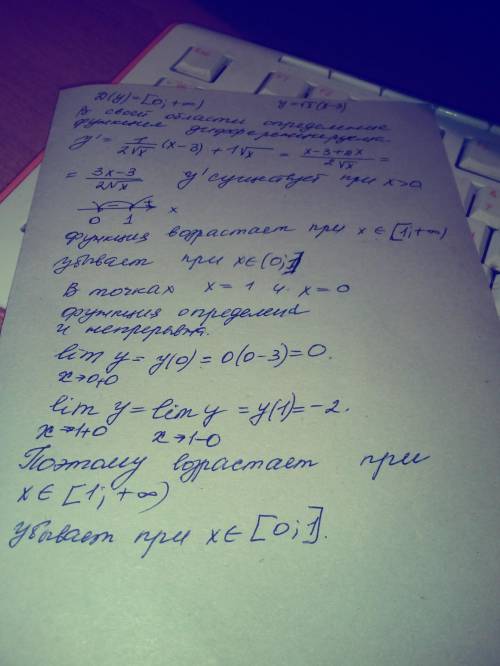 D(y)=[0;+∞) y=√x(x-3)
В своей области определения
функция дифференцируема.
y'= 1/(2√x) (x-3) + 1√x = (x-3+2x)/(2√x) =
= (3x-3)/(2√x) y' существует при x>0
- + x
0 1
функция возрастает при x∈[1;+∞)
убывает при x∈(0;1]
В точках x=1 и x=0
функция определена
и непрерывна.
lim y = y(0) = 0(0-3)=0.
x→0+0
lim y = lim y = y(1)=-2.
x→1+0 x→1-0
Поэтому возрастает при
x∈[1;+∞)
убывает при x∈[0;1].